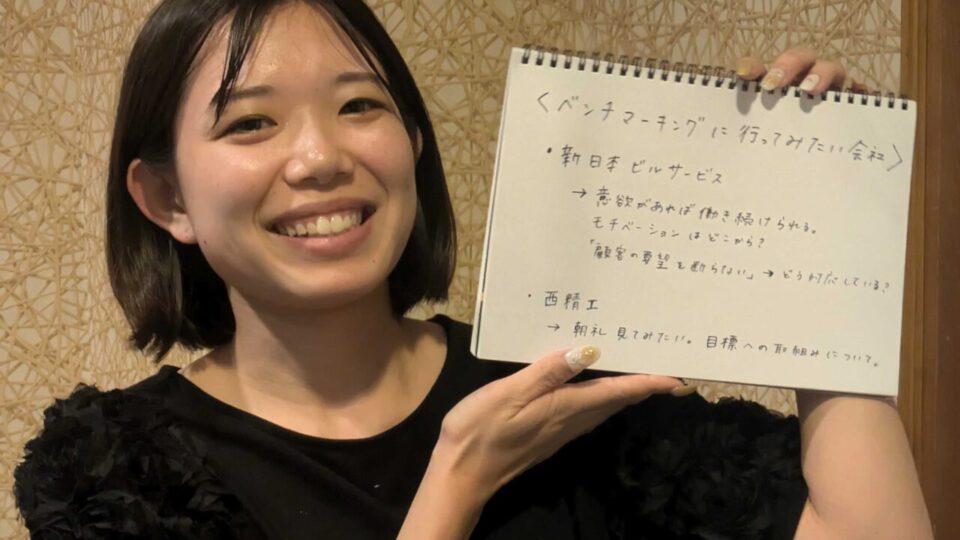 〈ベンチマーキングに行ってみたい会社〉
・新日本ビルサービス
→ 意欲があれば働き続けられる。
モチベーションはどこから?
「顧客の要望を断らない」→ どう対応している?
・西精工
→ 朝礼見てみたい。目標への取組みについて。